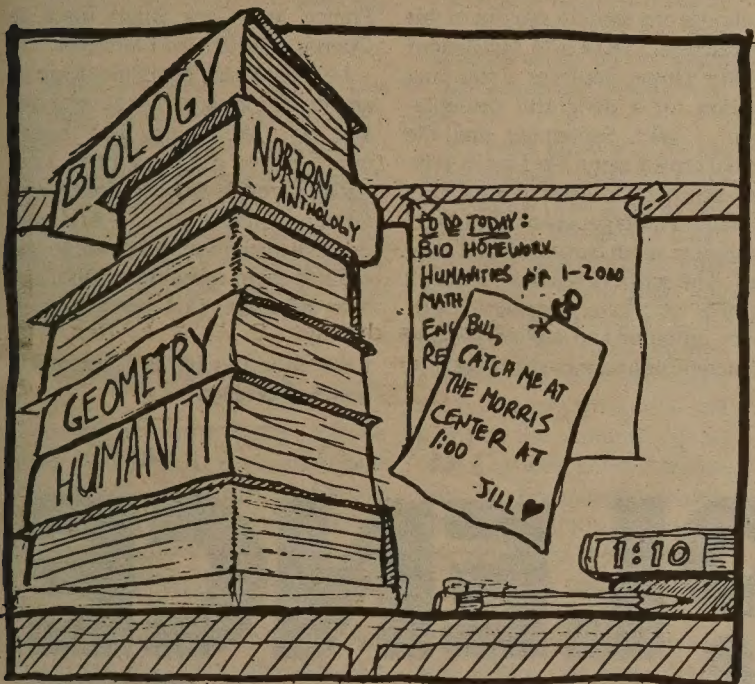 BIOLOGY
NORTON
ANTHOLOGY
GEOMETRY
HUMANITY
TO DO TODAY:
BIO HOMEWORK
HUMANITIES pp 1-2000
MATH
EN
RE
BILL,
CATCH ME AT
THE MORRIS
CENTER AT
1:00
JILL ♥
1:10